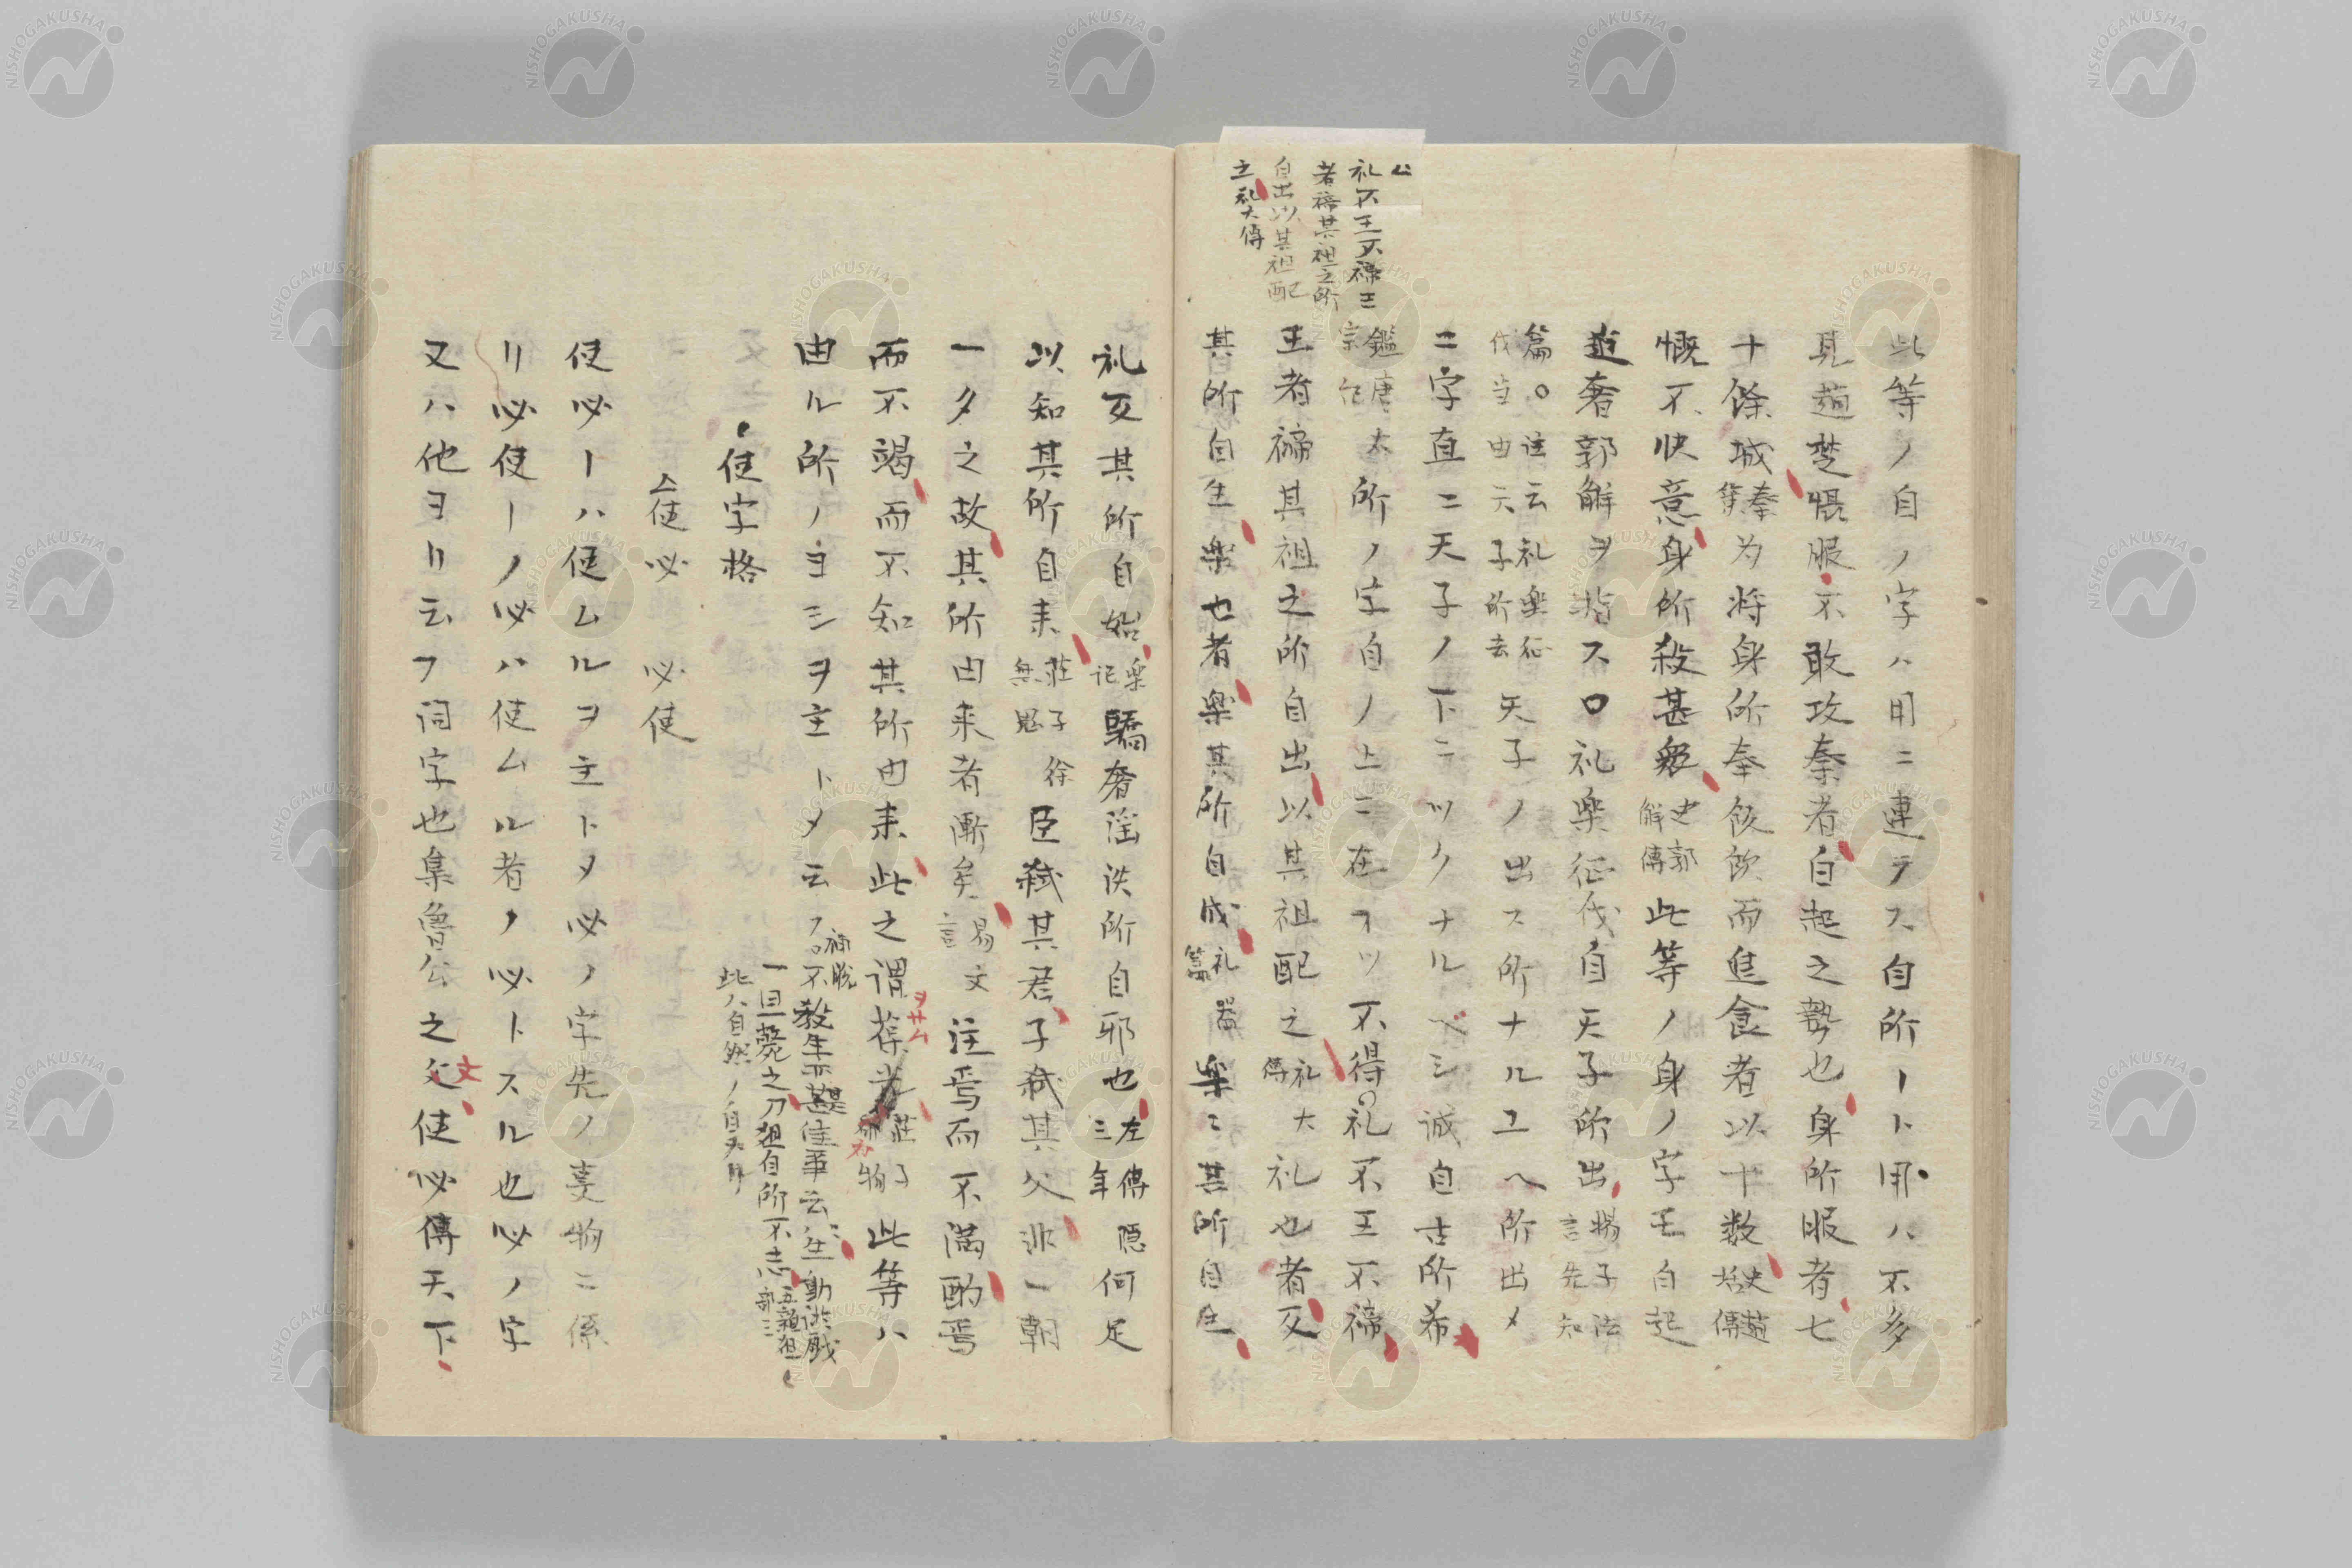 此等ノ自ノ字ハ用ニ連ラス自所ート用ハ不多
見趙楚慑服不敢攻秦者自起之勢也身所服者七
十餘城奉策為将身所奉飯飲而進食者以十数史趙奢傳
慨不快意身所殺甚衆史郭解傳此等ノ身ノ字モ白起
趙奢郭解ヲ指ス〇礼楽征伐自天子所出揚子法言先知
篇〇注云礼楽征伐当由天子所去天子ノ出ス所ナルユヘ所出メ
二字直ニ天子ノ下ニツクナルベシ誠自古所希
鑑唐太宗紀所ノ字自ノ上ニ在ラツ不得〇礼不王不禘
王者禘其祖之所自出以其祖配之礼大傳礼也者反
其所自生楽也者楽其所自成礼器篇楽ミ其所自生
公
礼不王不禘王
者禘其祖之所
自出以其祖配
之礼大傳
礼反其所自始楽記驕奢淫泆所自邪也左傳隠三年何足
以知其所自来莊子徐無鬼臣弑其君子弑其父非一朝
一夕之故其所由来者漸矣易文言注焉而不満酌焉
而不竭而不知其所由来此之謂葆光莊子斉物此等ハ
由ル所ノヨシヲ主トメ云フ
不殺生亦甚佳事云
一旦薨之刀俎自所不忘
此ハ自然ノ自
使字格
使必　必使
使必ーハ使ムルヲ主トメ必ノ字先ノ事物ニ係
リ必使ーノ必ハ使ムル者ノ必トスル也必ノ字
又ハ他ヨリ云フ詞字也集魯公之父文使必傳天下
NISHOGAKUSHA